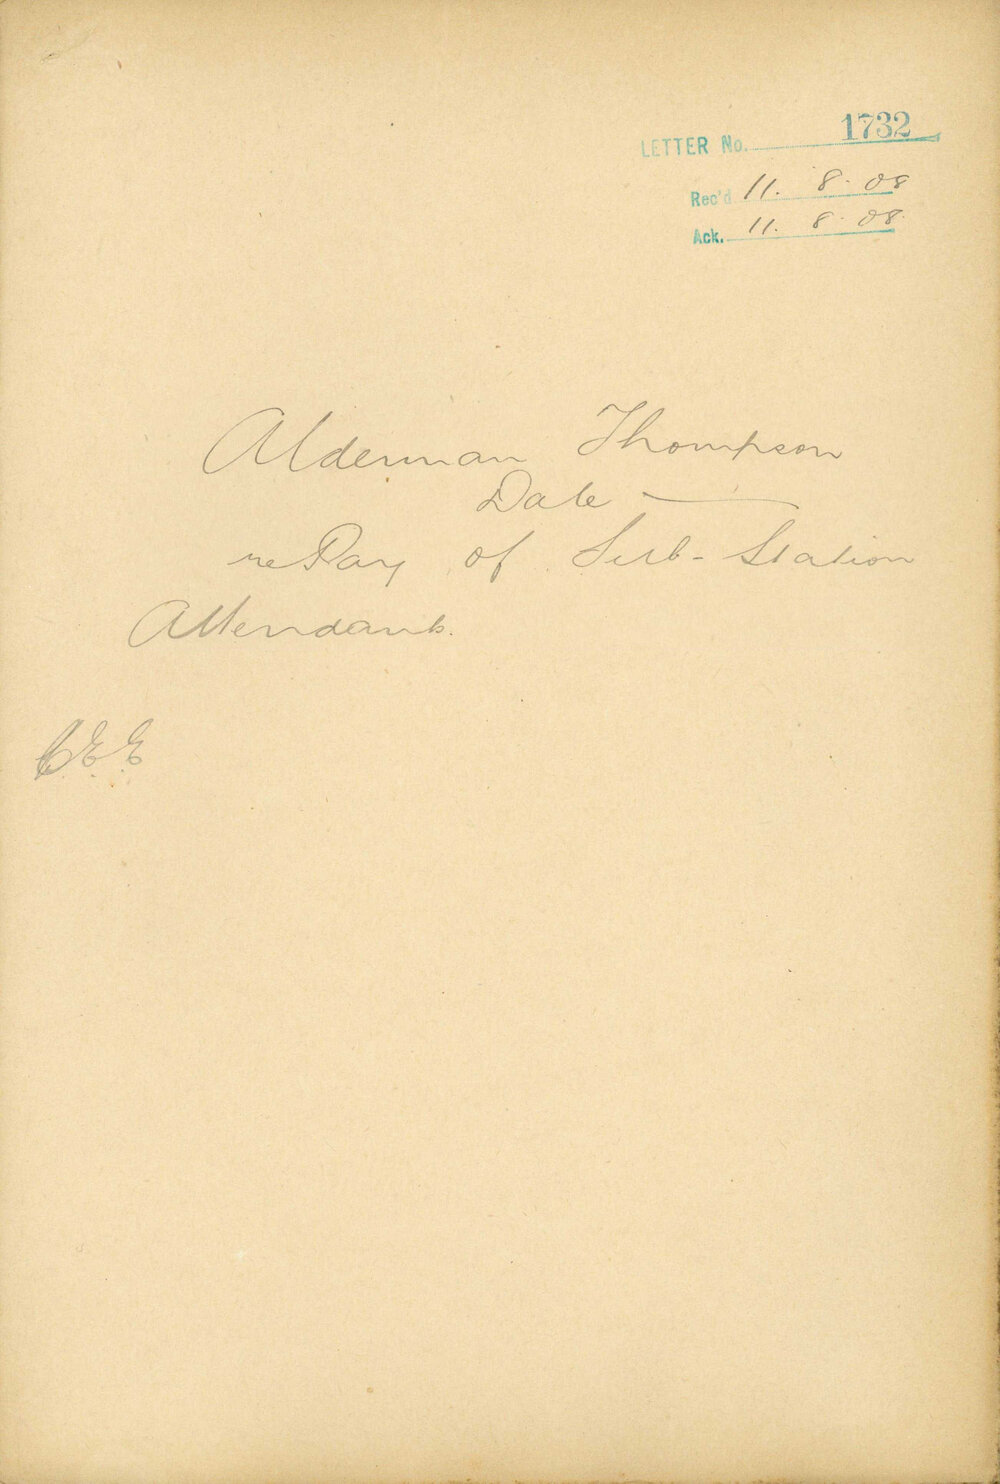 LETTER No. 1732
Rec'd 11. 8. 08
Ack. 11. 8. 08.
Alderman Thompson
Date —
re Pay of Sub-Station
Attendants.
C.E.E.